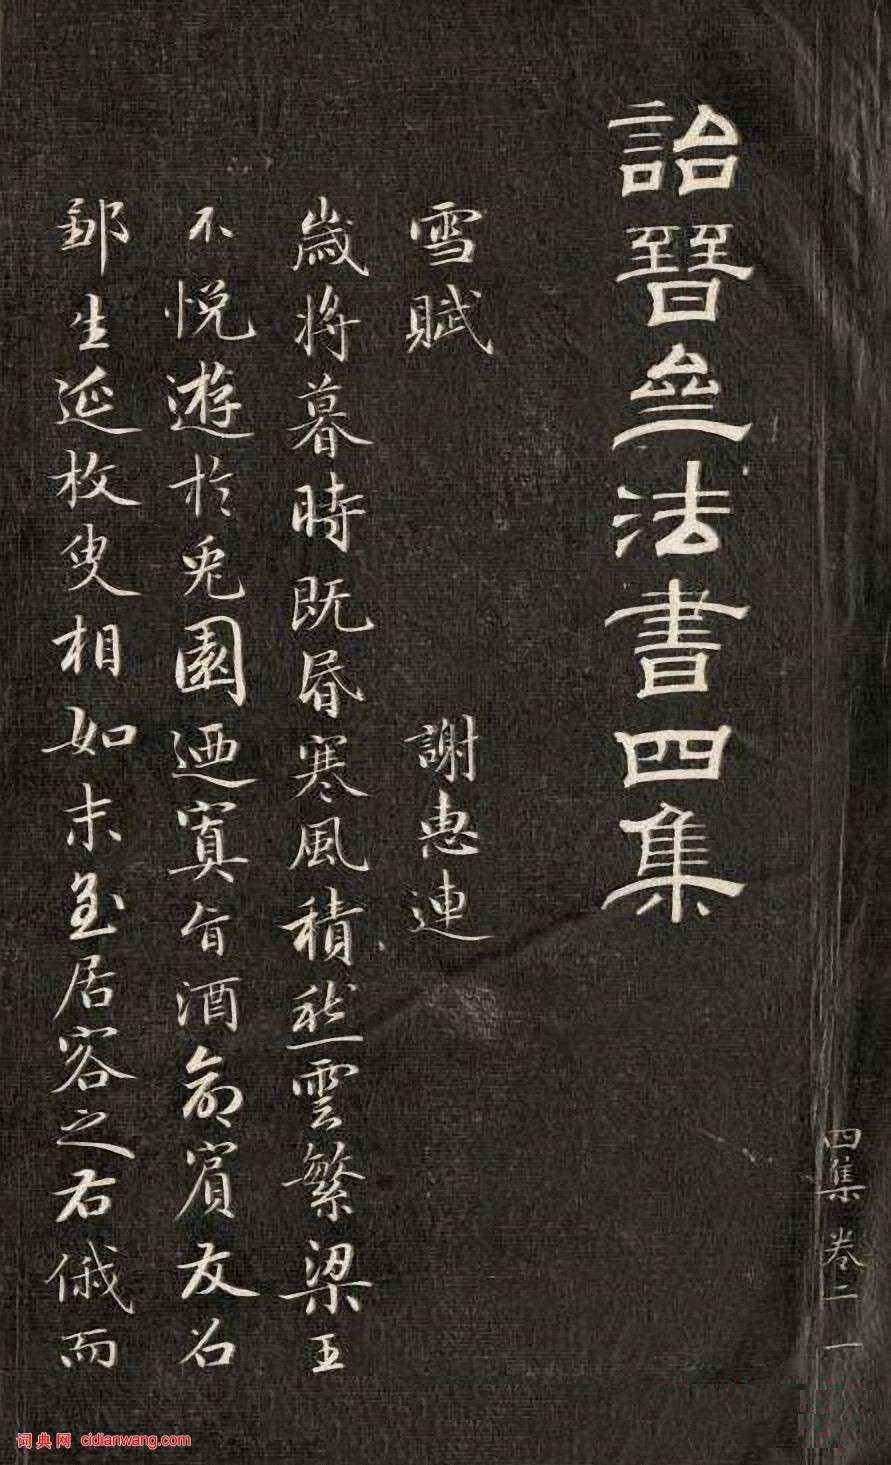 詒晉齋法書四集
雪賦 謝惠連
歲將暮時既昏寒風積愁雲繁梁王
不悅遊於兔園迺寘旨酒命賓友召
鄒生延枚叟相如末至居客之右俄而
四集 卷二 一
词典网 cidianwang.com